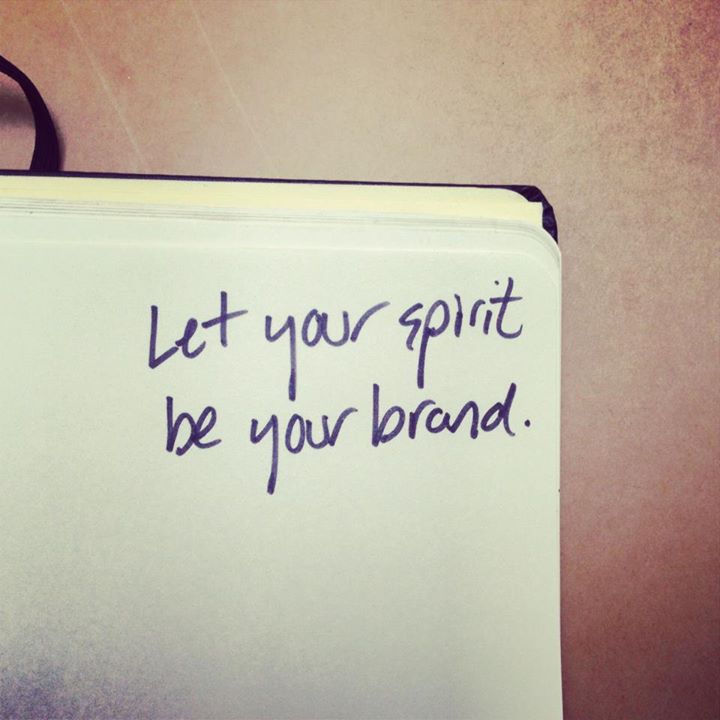 Let your spirit
be your brand.